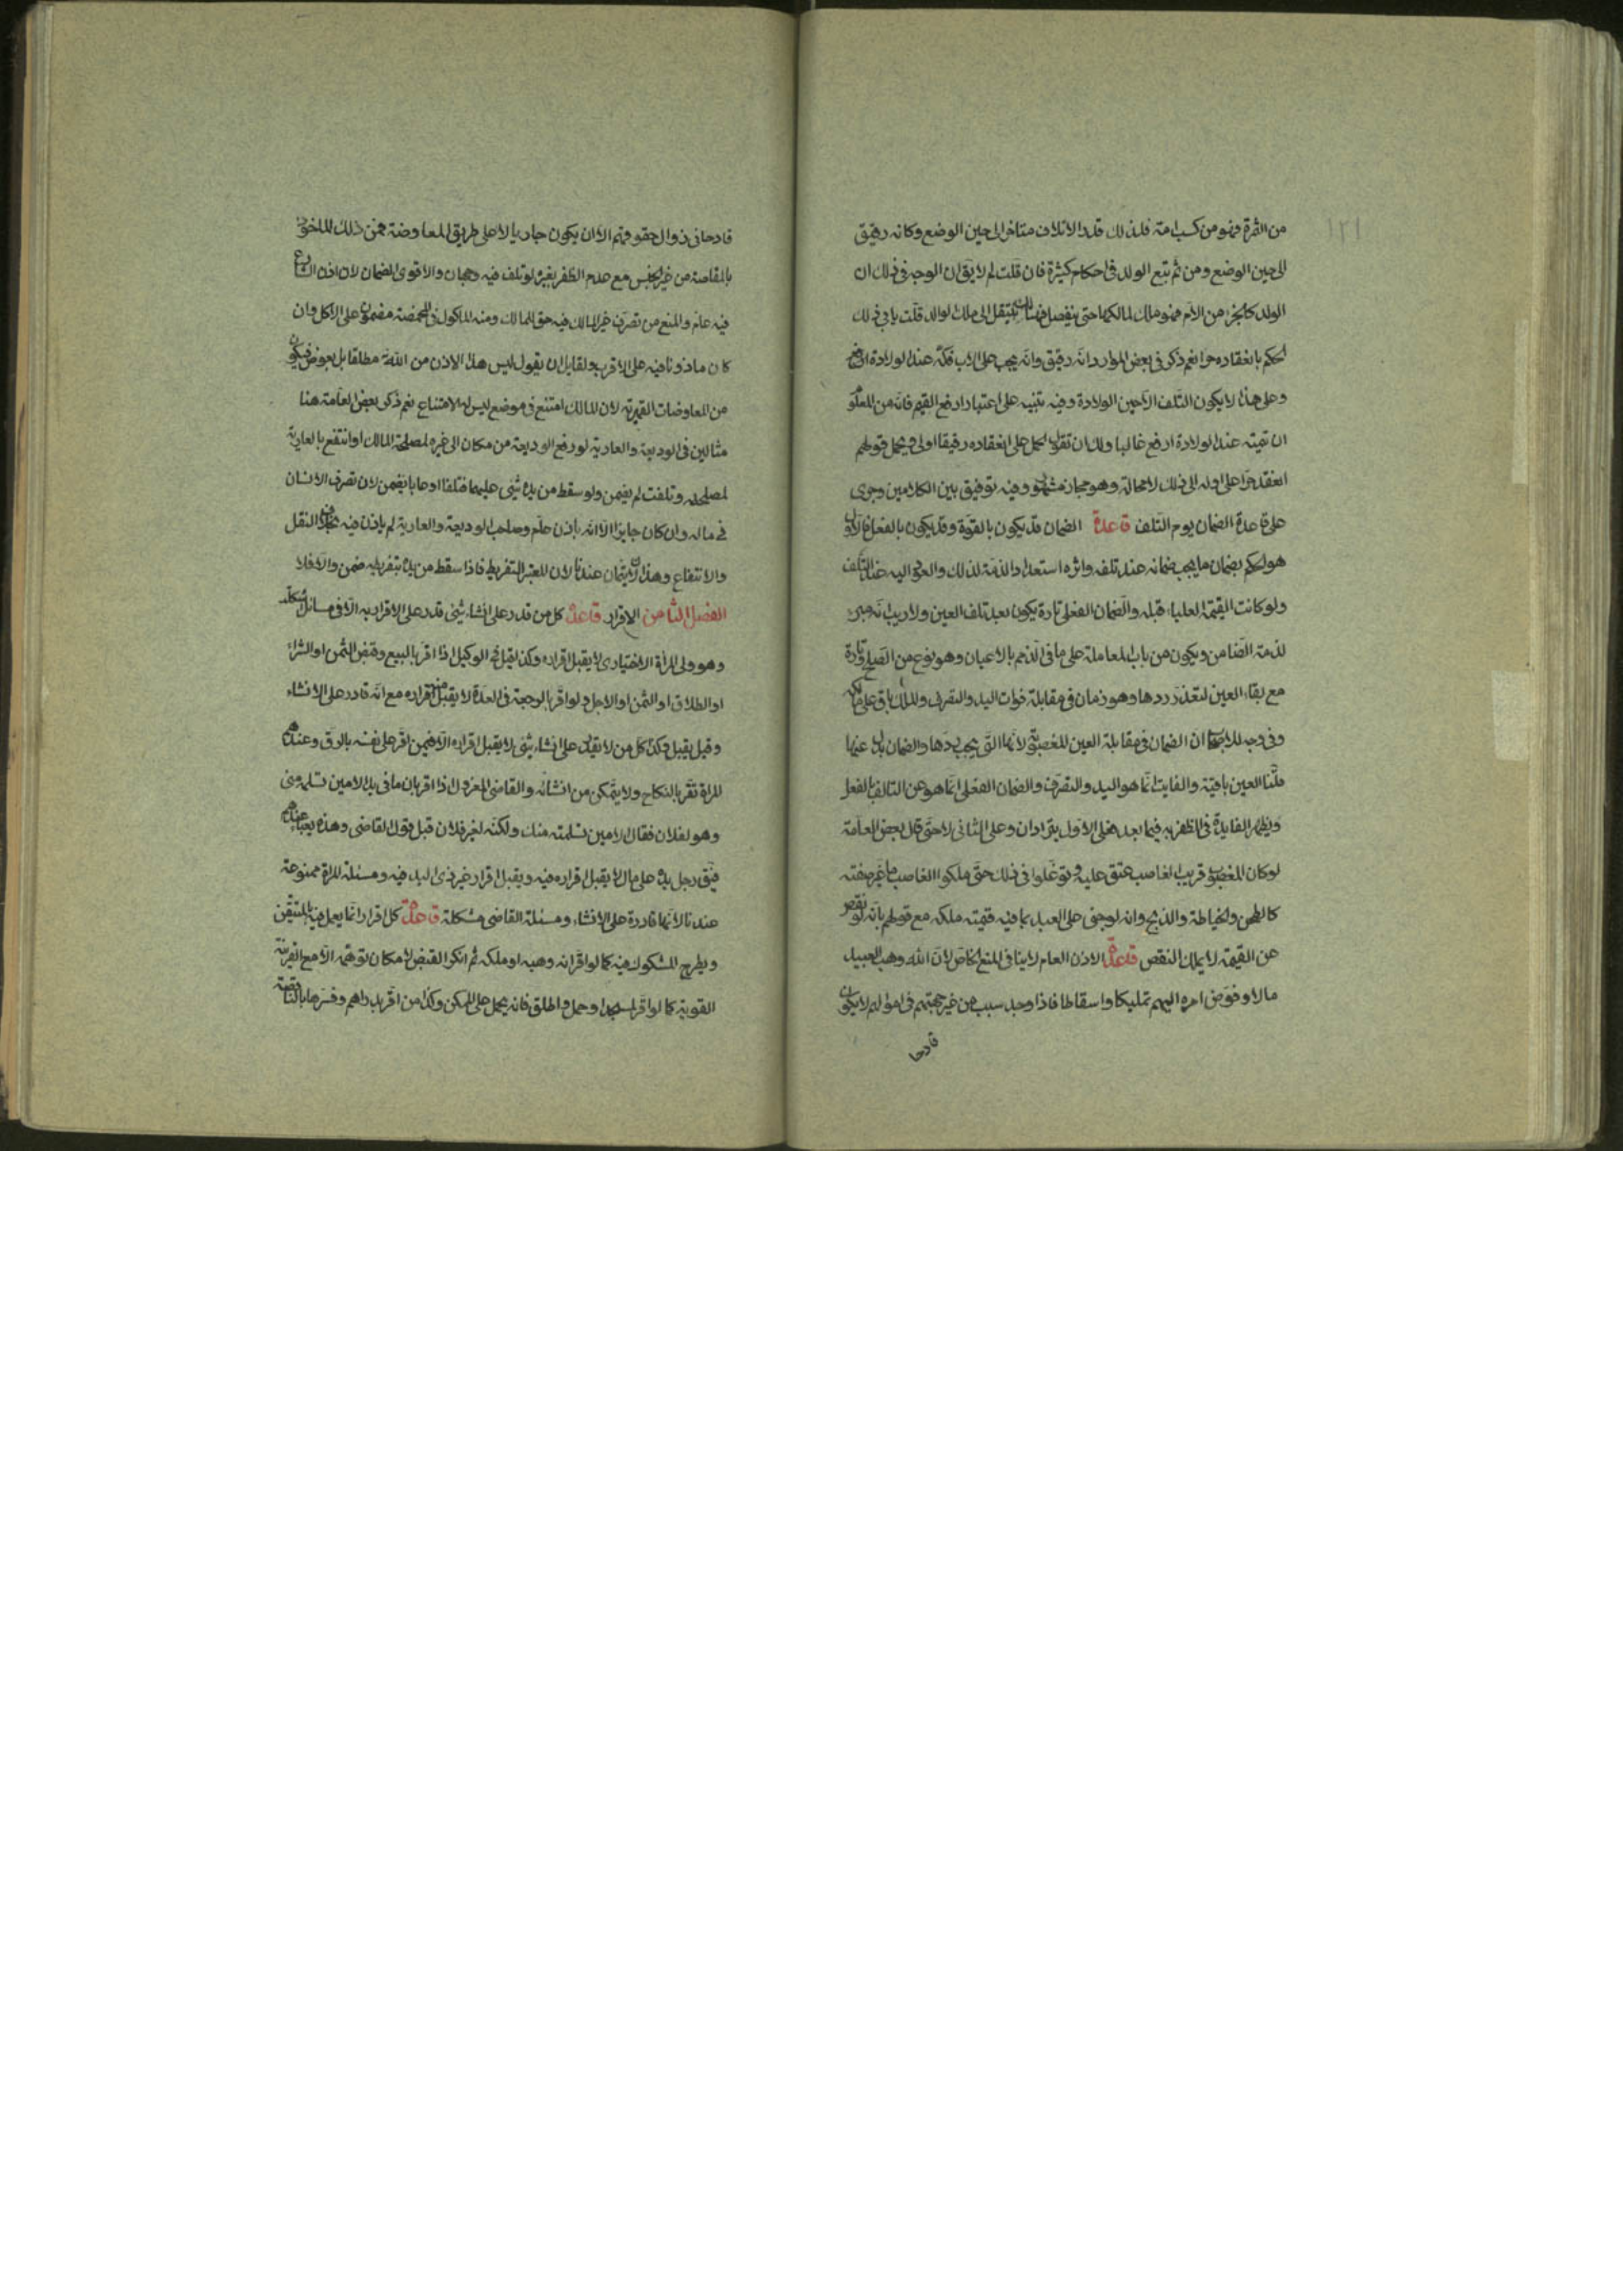 ١٢١
من الثمرة فهو من كسب امته فلذلك قدر الاتلاف متاخرا الى حين الوضع وكانه رقيق
الى حين الوضع ومن ثم تبع الولد في احكام كثيرة فان قلت لم لا يق ان الوجه في ذلك ان
الولد كالجزء من الام فهو ملك لمالكها حتى ينفصل فهناك ينتقل الى ملك الوالد قلت يابى ذلك
الحكم بانعقاده حرا نعم ذكر في بعض الموارد انه رقيق وانه يجب على الاب فكه عند الولادة
وعلى هذا لا يكون التلف الا حين الولادة وفيه تنبيه على اعتبار ارفع القيم فانه من المعلوم
ان قيمته عند الولادة ارفع غالبا ولك ان تقول الحمل على انعقاده رقيقا اولى ويحمل قولهم
انعقد حرا على اوله الى ذلك لا محالة وهو مجاز مشهور وفيه توفيق بين الكلامين وجرى
على قاعدة الضمان يوم التلف قاعدة الضمان قد يكون بالقوة وقد يكون بالفعل فالاول
هو الحكم بضمان ما يجب ضمانه عند تلفه واثره استعداد الذمة لذلك والعزم اليه عند التلف
ولو كانت القيمة العليا قبله والضمان الفعلي تارة يكون بعد تلف العين ولا ريب انه مبرئ
لذمة الضامن ويكون من باب المعاملة على ما في الذمم بالاعيان وهو نوع من الصلح وتارة
مع بقاء العين لتعذر ردها وهو ضمان في مقابلة فوات اليد والتصرف والملك باق على ملكه
وفي وجه للاصحاب ان الضمان في مقابلة العين المغصوبة لانها التي يجب ردها والضمان بدل عنها
قلنا العين باقية والفايت انما هو اليد والتصرف والضمان الفعلي انما هو عن التالف بالفعل
ويظهر الفايدة في الظفر به فيما بعد فعلى الاول يترادان وعلى الثاني لا حتى قال بعض العامة
لو كان المغصوب قريب الغاصب عتق عليه وتوغلوا في ذلك حتى ملكوا الغاصب ما غير صفته
كالطحن والخياطة والذبح وانه لو جنى على العبد بما فيه قيمته ملكه مع قولهم بانه لو نقص
عن القيمة لا يملك النقص قاعدة الاذن العام لا ينافي المنع الخاص لان الله وهب العبيد
مالا وفوض امره اليهم تمليكا واسقاطا فاذا وجد سبب من غير جهتهم في اموالهم لا يكون
قادحا
قادحا في زوال حقوقهم الا ان يكون جاريا لا على طريق المعاوضة فمن ذلك الماخوذ
بالمقاصة من غير الجنس مع عدم الظفر بغيره لو تلف فيه وجهان والاقوى الضمان لان اذن الشارع
فيه عام والمنع من تصرف غير المالك فيه حق المالك ومنه الماكول في المخمصة مضمون على الاكل وان
كان ماذونا فيه على الاقرب ولقايل ان يقول ليس هذا الاذن من الله مطلقا بل بعوض فيكون
من المعاوضات القهرية لان المالك امتنع في موضع ليس له الامتناع نعم ذكر بعض العامة هنا
مثالين في الوديعة والعارية لو رفع الوديعة من مكان الى غيره لمصلحة المالك او انتفع بالعارية
لمصلحته وتلفت لم يضمن ولو سقط من يده شيء عليهما فتلفا او عابا يضمن لان تصرف الانسان
في ماله وان كان جايزا الا انه باذن عام وصاحب الوديعة والعارية لم ياذن فيه بخلاف النقل
والانتفاع وهذان لا يتمان عندنا لان المعتبر التفريط فاذا سقط من يده بتفريطه ضمن والا فلا
الفصل الثامن الاقرار قاعدة كل من قدر على انشاء شيء قدر على الاقرار به الا في مسائل
وهو ولي المراة الاختياري لا يقبل اقراره وكذا قيل في الوكيل اذا اقر بالبيع وقبض الثمن او الشراء
او الطلاق او الثمن او الاجل ولو اقر بالرجعة في العدة لا يقبل منه اقراره مع انه قادر على الانشاء
وقيل يقبل وكذا كل من لا يقدر على انشاء شيء لا يقبل اقراره الا فيمن اقر على نفسه بالرق وعندهم
المراة تقر بالنكاح ولا يتمكن من انشائه والقاضي المعزول اذا اقر بان ما في يد الامين تسلمه مني
وهو لفلان فقال الامين تسلمته منك ولكنه لغير فلان قبل قول القاضي وهذه
فيق رجل يده على مال لا يقبل اقراره فيه ويقبل اقرار غير ذي اليد فيه ومسئلة المراة ممنوعة
عندنا لانها قادرة على الانشاء ومسئلة القاضي مشكلة قاعدة كل اقرار انما يعمل فيه بالمتيقن
ويطرح المشكوك فيه كما لو اقر انه وهبه او ملكه ثم انكر القبض لامكان توهمه الا مع القرينة
القوية كما لو اقر لمسجد او حمل واطلق فانه يحمل على الممكن وكذا من اقر بدراهم وفسرها بالناقصة